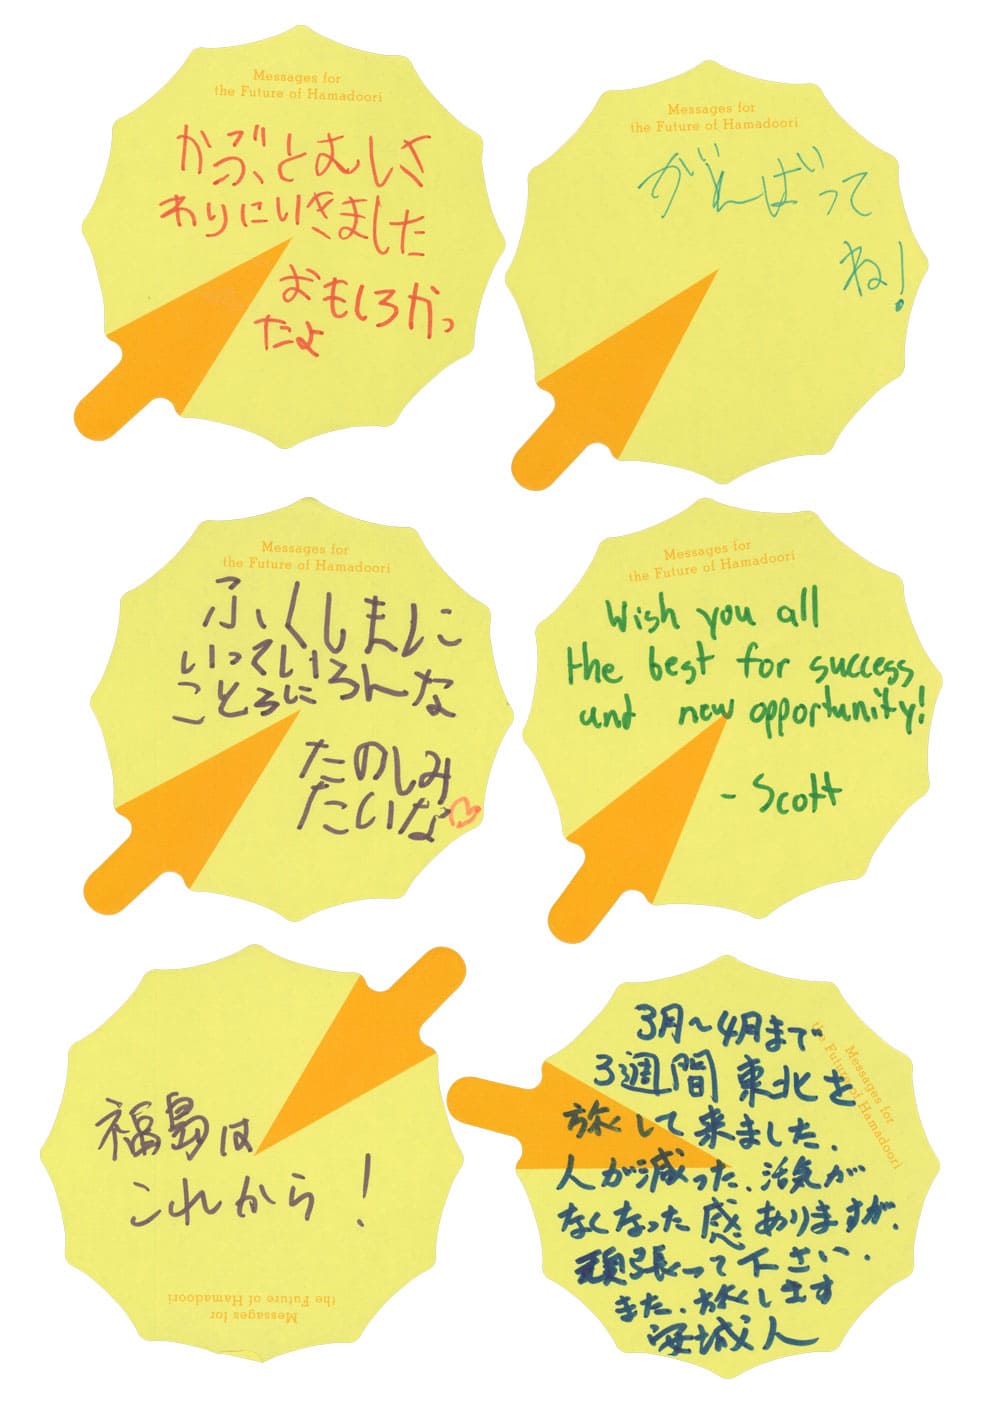 Messages for
the Future of Hamadoori
かぶとむしさ
わりにいきました
おもしろかっ
たよ
Messages for
the Future of Hamadoori
がんばって
ね!
Messages for
the Future of Hamadoori
ふくしまに
いっていろんな
ことろに
たのしみ
たいな
Messages for
the Future of Hamadoori
Wish you all
the best for success
and new opportunity!
- Scott
福島は
これから!
Messages for
the Future of Hamadoori
Messages for
the Future of Hamadoori
3月~4月まで
3週間東北を
旅して来ました.
人が減った、活気が
なくなった感ありますが、
頑張って下さい.
また、旅します
安城人